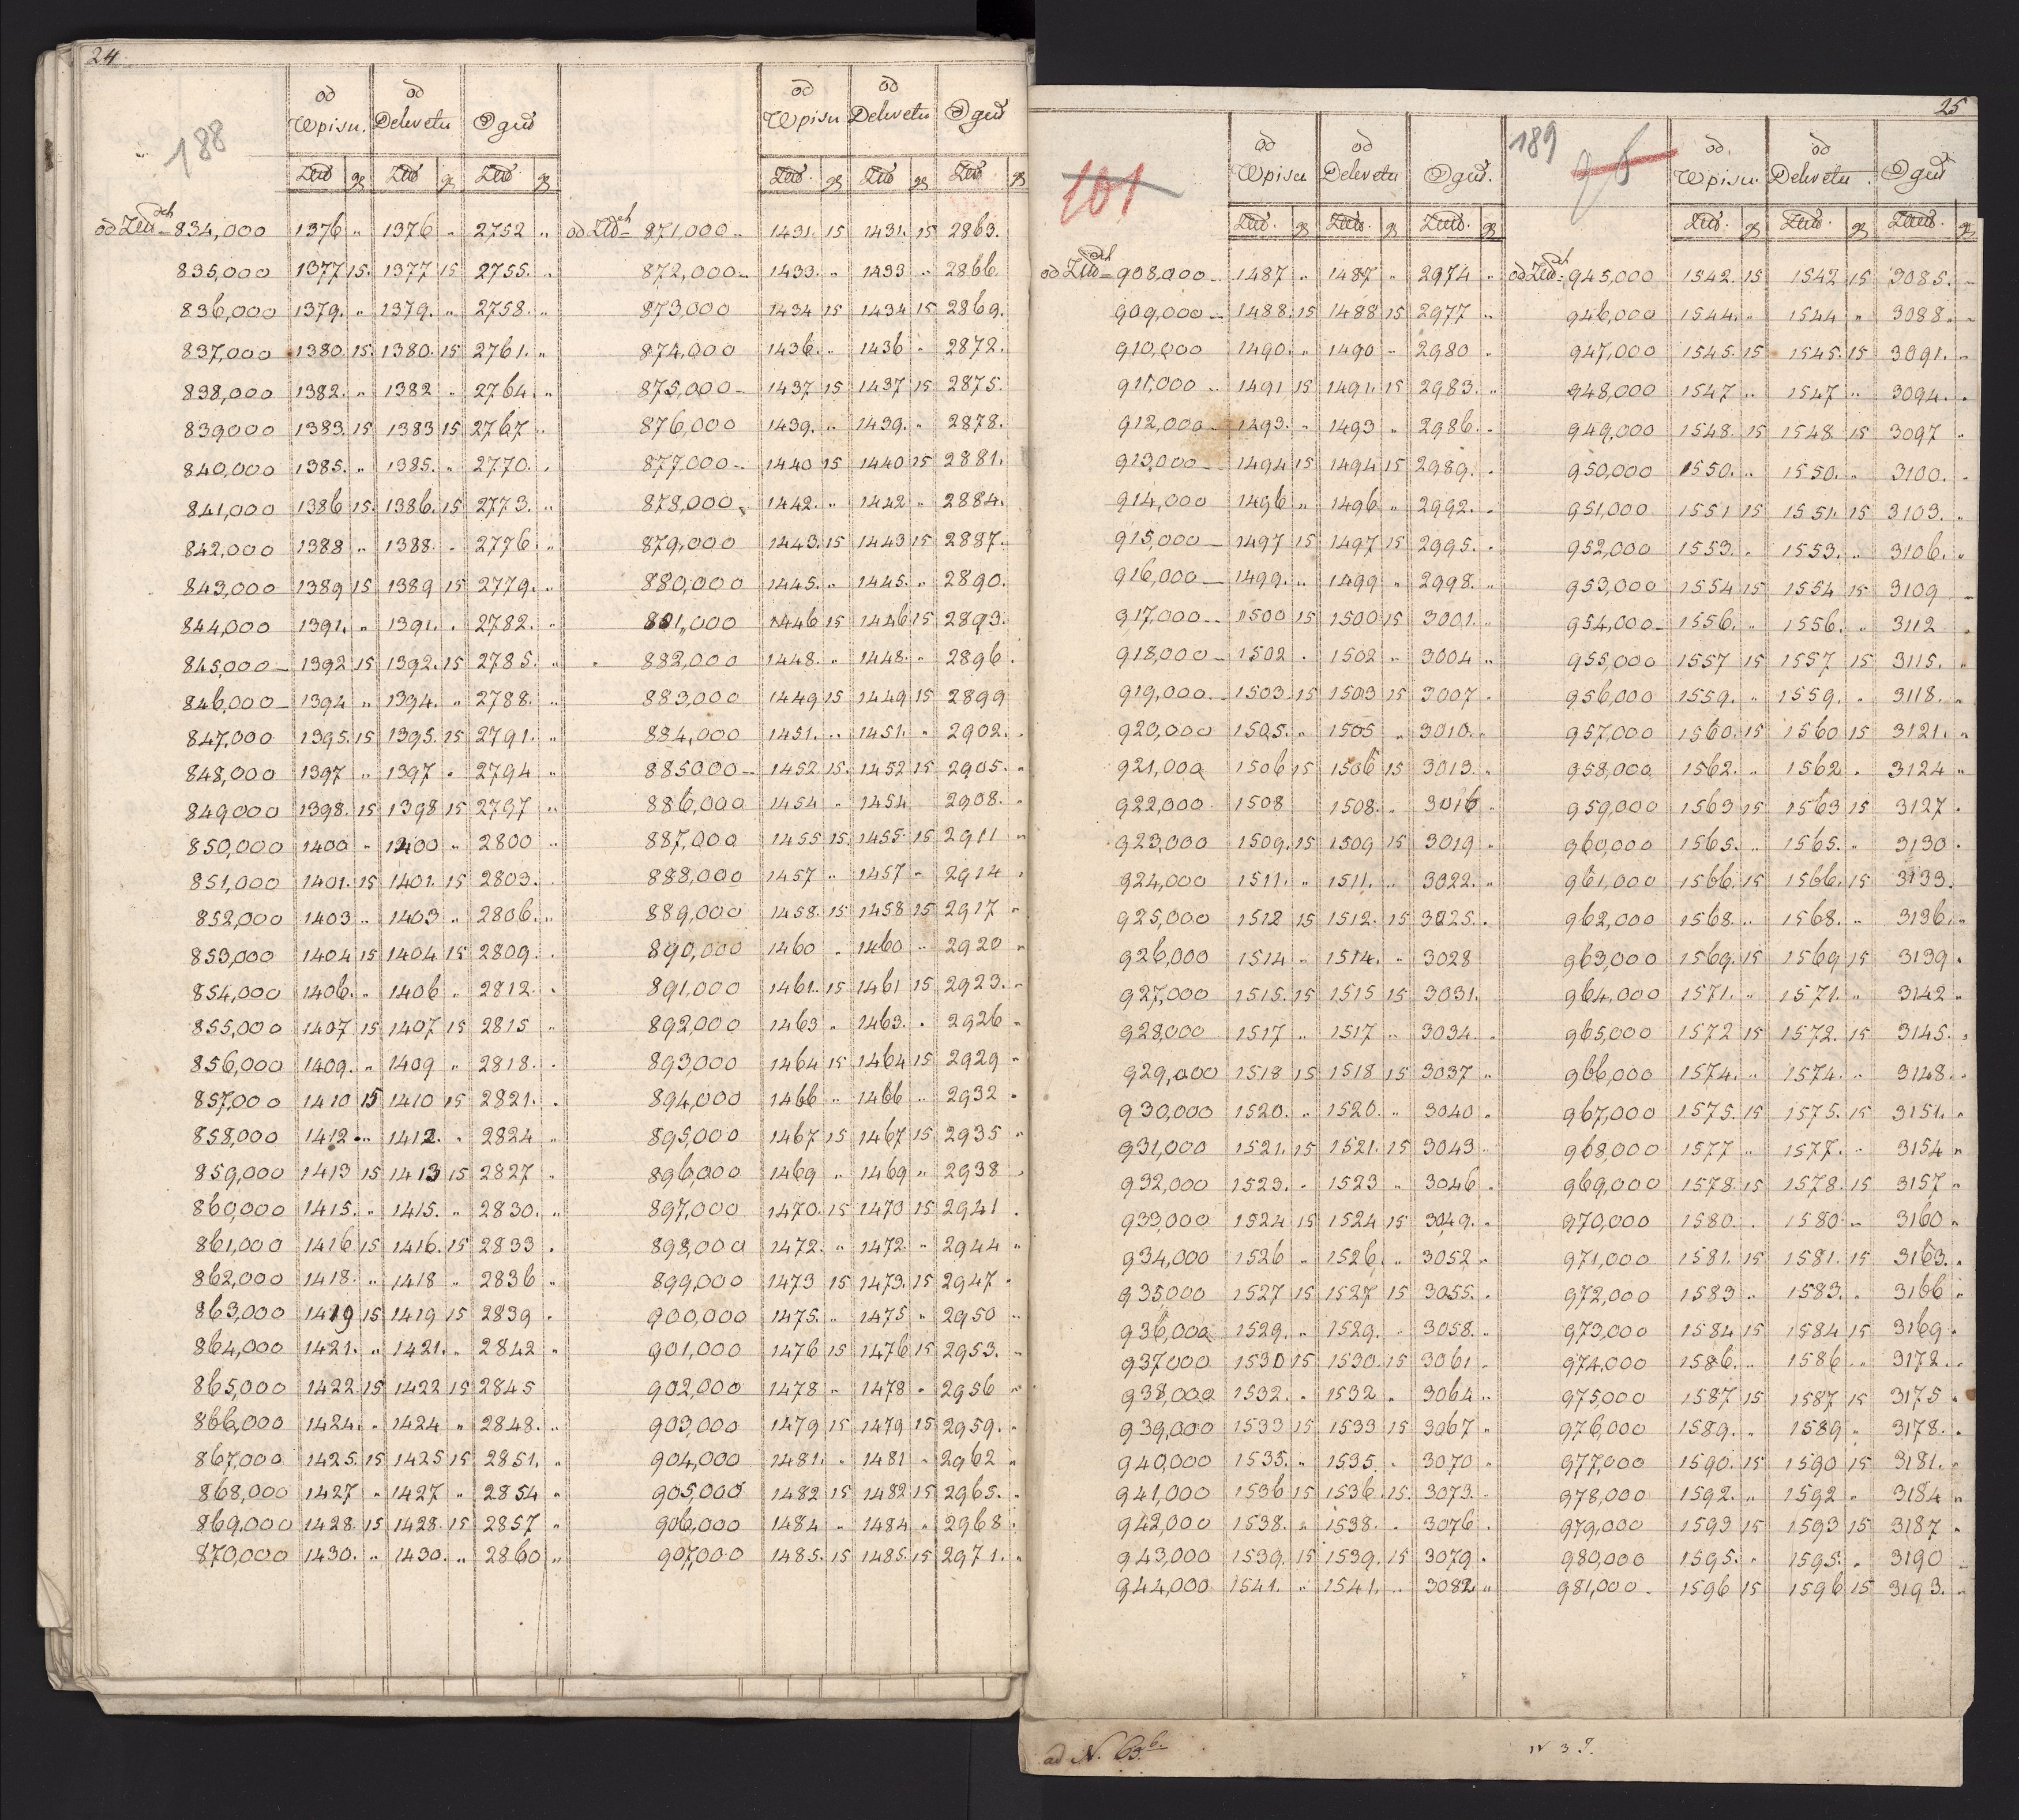 24
188
od Wpisu. od Dekretu Oguł od Wpisu od Dekretu Oguł
Złł gr Złł gr Złł gr Złł. gr Złł gr Złł. gr
od Złłch 834,000 1376 „ 1376 „ 2752 „ od Złłch 871,000 „ 1431. 15 1431. 15 2863.
835,000 1377 15. 1377 15 2755. „ 872,000 „ 1433. „ 1433 „ 2866.
836,000 1379. „ 1379. „ 2758. „ 873,000 1434 15 1434 15 2869.
837,000 1380 15. 1380. 15 2761. „ 874,000 1436. „ 1436 „ 2872.
838,000 1382. „ 1382 „ 2764. „ 875,000 – 1437 15 1437 15 2875.
839000 1383. 15 1383 15 2767 „ 876,000 1439. „ 1439. „ 2878.
840,000 1385. „ 1385. „ 2770. „ 877,000 – 1440 15 1440 15 2881.
841,000 1386 15. 1386. 15 2773. „ 878,000 „ 1442. „ 1442 „ 2884.
842,000 1388 „ 1388. „ 2776. „ 879,000 1443. 15 1443 15 2887.
843,000 1389 15 1389 15 2779. „ 880,000 1445. „ 1445. „ 2890.
844,000 1391. „ 1391. „ 2782. „ 881,000 1446 15 1446 15 2893.
845,000 – 1392 15 1392. 15 2785. „ 882,000 1448. „ 1448. „ 2896.
846,000 – 1394 „ 1394. „ 2788. „ 883,000 1449 15 1449 15 2899
847,000 1395. 15 1395. 15 2791. „ 884,000 1451. „ 1451. „ 2902. „
848,000 1397 „ 1397 „ 2794 „ 885000 – 1452 15. 1452 15 2905. „
849000 1398. 15 1398 15 2797 „ 886,000 1454 „ 1454 2908. „
850,000 1400 „ 1400 „ 2800 „ 887,000 1455 15. 1455 15 2911 „
851,000 1401. 15 1401. 15 2803. „ 888,000 1457 „ 1457 „ 2914 „
852,000 1403 „ 1403 „ 2806. „ 889,000 1458. 15 1458 15 2917 „
853,000 1404 15 1404 15 2809. „ 890,000 1460 „ 1460 „ 2920 „
854,000 1406. „ 1406 „ 2812. „ 891,000 1461. 15 1461 15 2923. „
855,000 1407 15 1407 15 2815 „ 892,000 1463 „ 1463. „ 2926 „
856,000 1409. „ 1409 „ 2818. „ 893,000 1464 15 1464 15 2929 „
857,000 1410 15 1410 15 2821. „ 894,000 1466 „ 1466 „ 2932 „
858,000 1412 „ 1412. „ 2824 „ 895,000 1467 15 1467 15 2935 „
859,000 1413 15 1413 15 2827 „ 896,000 1469 „ 1469 „ 2938 „
860,000 1415. „ 1415. „ 2830. „ 897,000 1470. 15 1470 15 2941 „
861,000 1416 15 1416. 15 2833 „ 898,000 1472. „ 1472. „ 2944 „
862,000 1418. „ 1418 „ 2836 „ 899,000 1473 15 1473. 15 2947 „
863,000 1419 15 1419 15 2839 „ 900,000 1475. „ 1475 „ 2950 „
864,000 1421. „ 1421. „ 2842 „ 901,000 1476 15 1476 15 2953. „
865,000 1422 15 1422 15 2845 902,000 1478 „ 1478 „ 2956 „
866,000 1424. „ 1424 „ 2848. „ 903,000 1479 15 1479 15 2959. „
867,000 1425. 15 1425 15 2851. „ 904,000 1481. „ 1481 „ 2962 „
868,000 1427 „ 1427 „ 2854 „ 905,000 1482 15 1482 15 2965. „
869,000 1428. 15 1428. 15 2857 „ 906,000 1484 „ 1484 „ 2968 „
870,000 1430. „ 1430. „ 2860 „ 907000 1485. 15 1485. 15 2971. „
25
101 189 75
od Wpisu od Dekretu Oguł. od. Wpisu. od Dekretu. Oguł
Złł. gr Złł. gr Złł. gr Złł. gr Złł. gr Złł. gr
od Złłch 908,000 – 1487 „ 1487 „ 2974 „ od Złłch 945,000 1542. 15 1542 15 3085. „
909,000 – 1488. 15 1488 15 2977 „ 946,000 1544. „ 1544 „ 3088. „
910,000 1490. „ 1490 „ 2980 „ 947,000 1545. 15 1545. 15 3091. „
911,000 „ 1491 15 1491. 15 2983. „ 948,000 1547 „ 1547 „ 3094. „
912,000 – 1493. „ 1493 „ 2986. „ 949,000 1548. 15 1548 15 3097 „
913,000 – 1494 15 1494 15 2989. „ 950,000 1550. „ 1550. „ 3100. „
914,000 1496 „ 1496 „ 2992. „ 951,000 1551 15 1551. 15 3103. „
915,000 – 1497 15 1497 15 2995. „ 952,000 1553. „ 1553. „ 3106. „
916,000 – 1499. „ 1499 „ 2998. „ 953,000 1554 15 1554 15 3109 „
917,000 – 1500 15 1500 15 3001. „ 954,000 – 1556. „ 1556. „ 3112 „
918,000 – 1502 „ 1502 „ 3004 „ 955,000 1557 15 1557 15 3115. „
919,000 – 1503. 15 1503 15 3007 „ 956,000 1559. „ 1559. „ 3118. „
920,000 1505. „ 1505 „ 3010. „ 957,000 1560. 15 1560 15 3121. „
921,000 1506 15 1506 15 3013. „ 958,000 1562. „ 1562 „ 3124 „
922,000 1508 1508. „ 3016 „ 959,000 1563 15 1563 15 3127 „
923,000 1509. 15 1509 15 3019 „ 960,000 1565. „ 1565. „ 3130 „
924,000 1511. „ 1511. „ 3022. „ 961,000 1566. 15 1566. 15 3133.
925,000 1512 15 1512. 15 3025. „ 962,000 1568. „ 1568. „ 3136. „
926,000 1514 „ 1514. „ 3028 963,000 1569. 15 1569 15 3139 „
927,000 1515. 15 1515 15 3031. 964,000 1571. „ 1571. „ 3142 „
928,000 1517 „ 1517 „ 3034. „ 965,000 1572 15 1572. 15 3145. „
929,000 1518 15 1518 15 3037 „ 966,000 1574. „ 1574. „ 3148. „
930,000 1520. „ 1520. „ 3040 „ 967,000 1575. 15 1575. 15 3151. „
931,000 1521. 15 1521. 15 3043 „ 968,000 1577 „ 1577. „ 3154 „
932,000 1523. „ 1523 „ 3046 „ 969,000 1578. 15 1578. 15 3157 „
933,000 1524 15 1524 15 3049. „ 970,000 1580. „ 1580 „ 3160 „
934,000 1526 „ 1526. „ 3052 „ 971,000 1581. 15 1581. 15 3163. „
935,000 1527 15 1527 15 3055. „ 972,000 1583 „ 1583. „ 3166 „
936,000 1529. „ 1529. „ 3058. „ 973,000 1584 15 1584 15 3169 „
937000 1530 15 1530. 15 3061 „ 974,000 1586. „ 1586 „ 3172. „
938,000 1532. „ 1532 „ 3064 „ 975,000 1587 15 1587 15 3175 „
939,000 1533 15 1533 15 3067 „ 976,000 1589. „ 1589 „ 3178. „
940,000 1535. „ 1535. „ 3070 „ 977,000 1590. 15 1590 15 3181. „
941,000 1536 15 1536. 15. 3073. „ 978,000 1592. „ 1592 „ 3184 „
942,000 1538. „ 1538. „ 3076 „ 979,000 1593 15 1593 15 3187 „
943,000 1539. 15 1539. 15 3079. „ 980,000 1595. „ 1595. „ 3190 –
944,000 1541. „ 1541. „ 3082 „ 981,000 – 1596 15 1596 15 3193. „
ad N. 63.b.